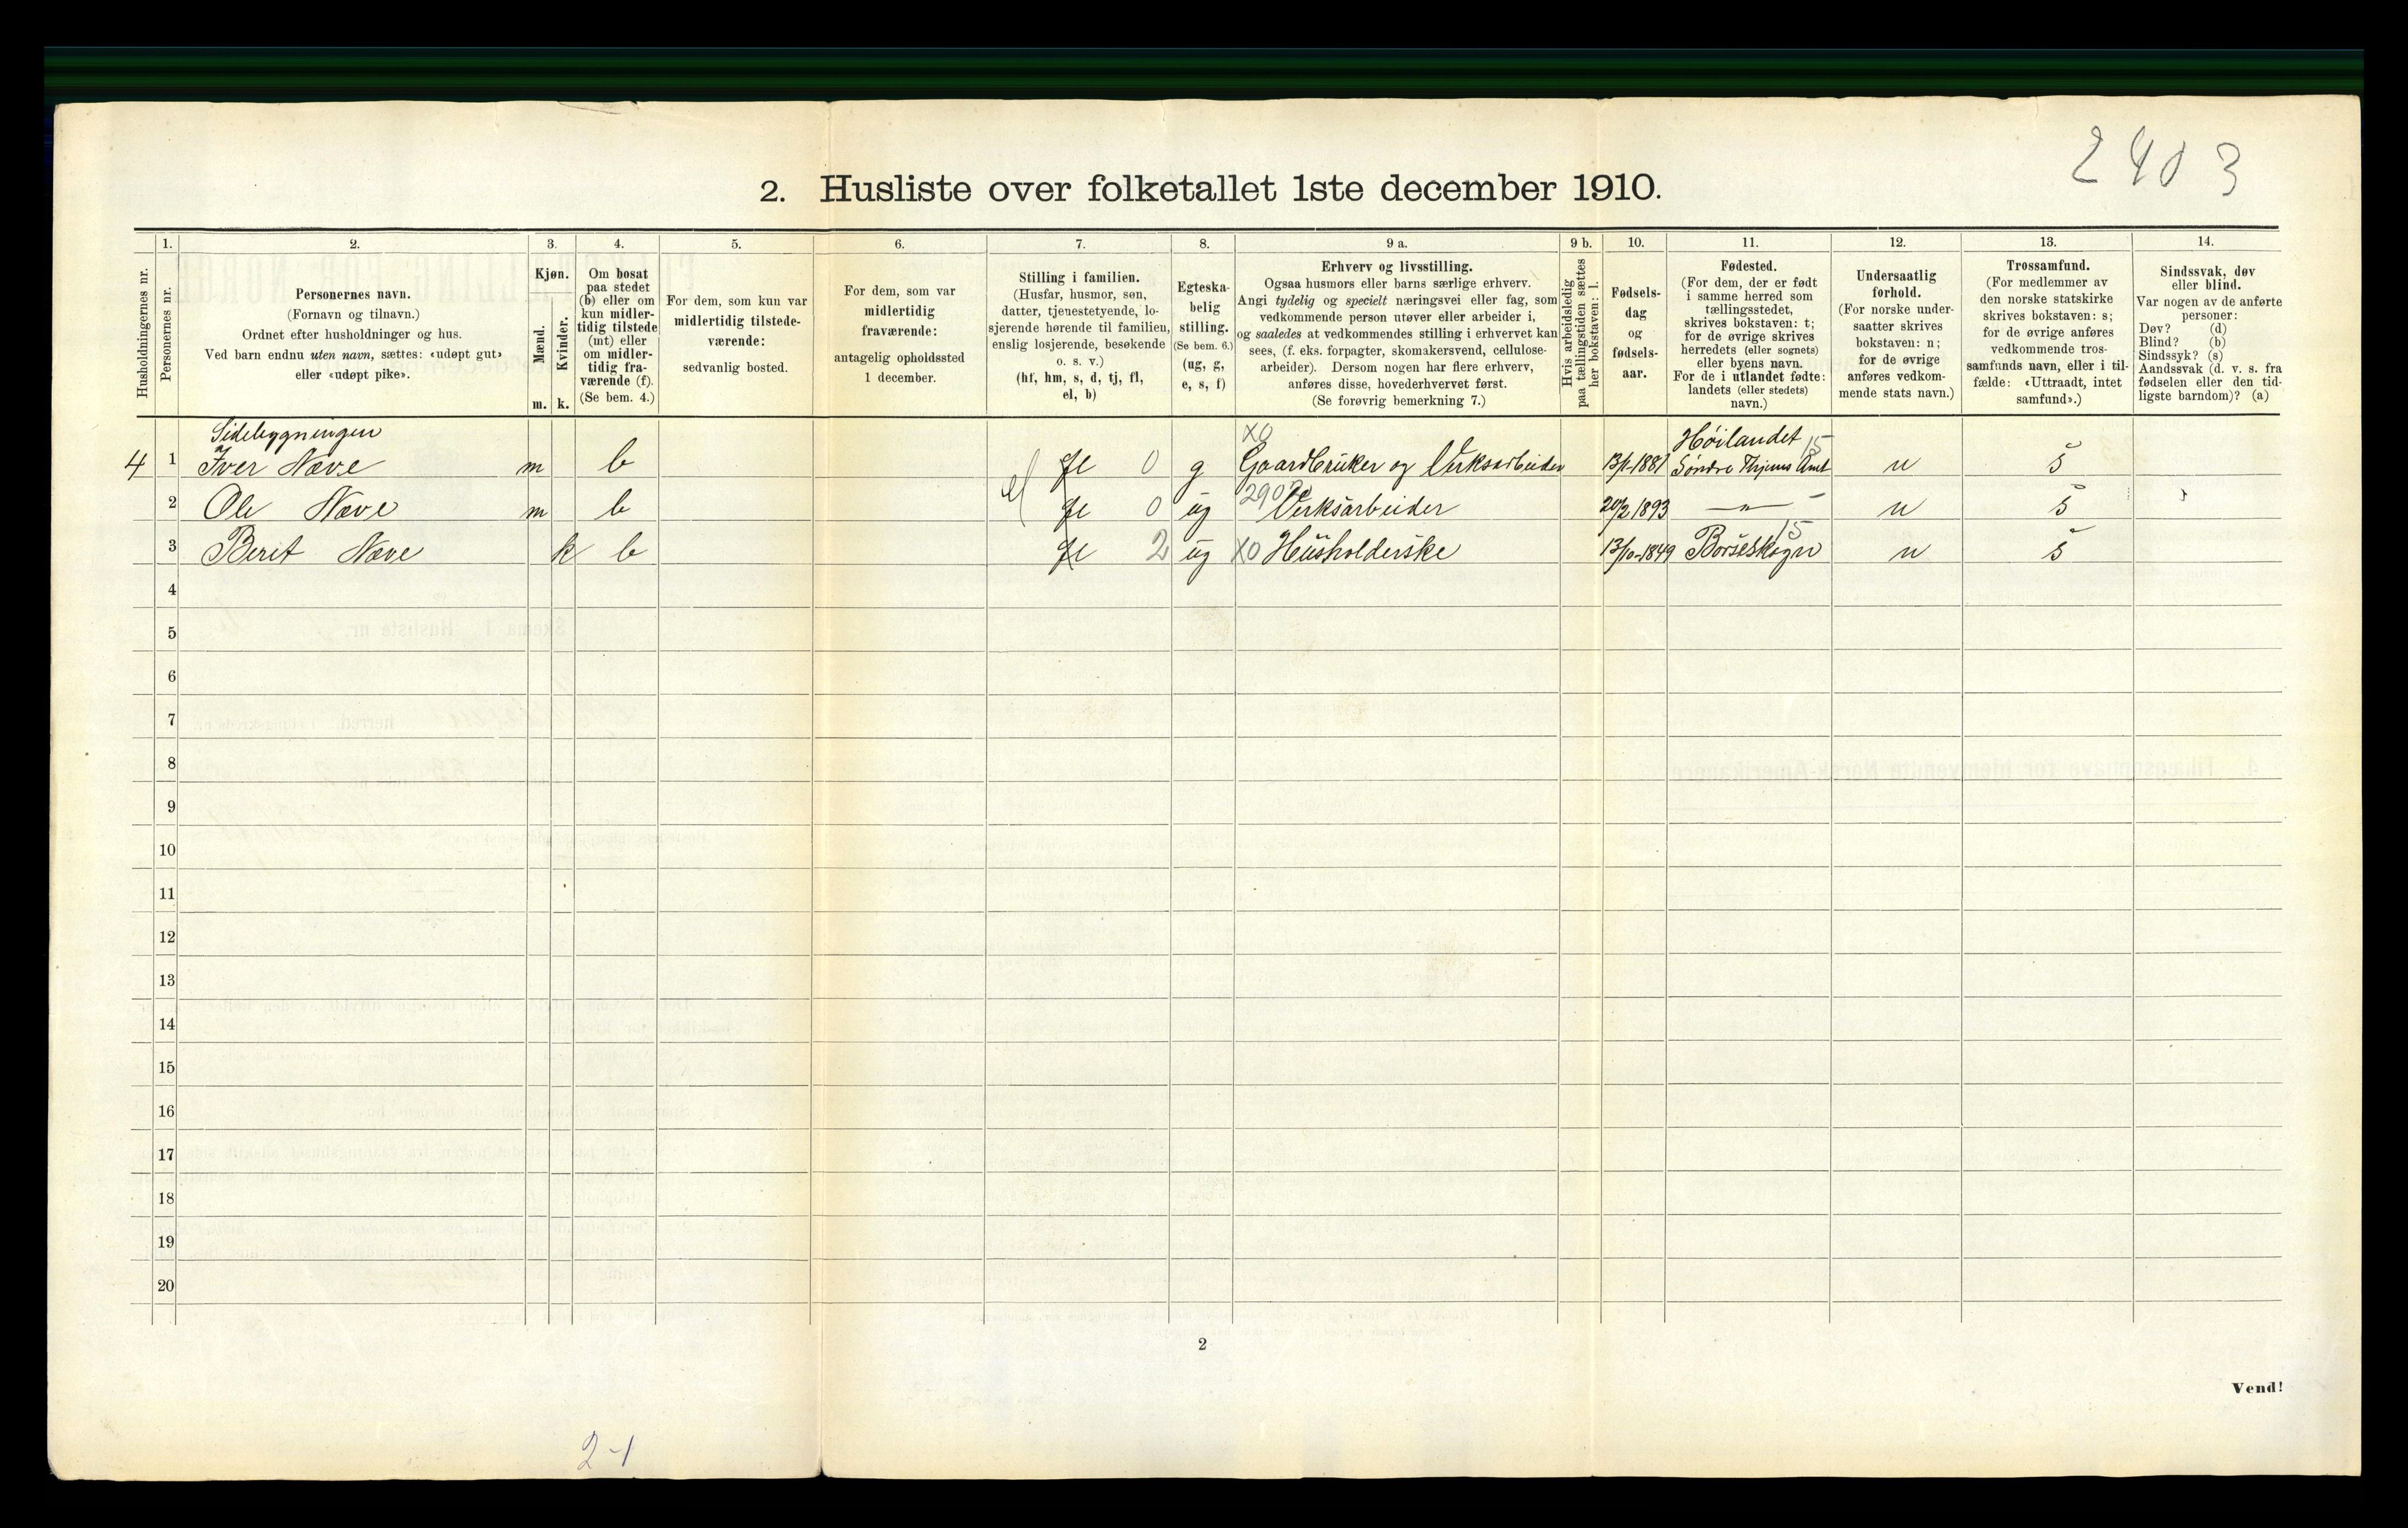 2403
2. Husliste over folketallet 1ste december 1910.
Husholdningernes nr.
1.
Personernes nr.
2.
Personernes navn.
(Fornavn og tilnavn.)
Ordnet efter husholdninger og hus.
Ved barn endnu uten navn, sættes: «udøpt gut»
eller «udøpt pike».
3.
Kjøn.
Mænd.
Kvinder.
m. k.
4.
Om bosat
paa stedet
(b) eller om
kun midler-
tidig tilstede
(mt) eller
om midler-
tidig fra-
værende (f).
(Se bem. 4.)
5.
For dem, som kun var
midlertidig tilstede-
værende:
sedvanlig bosted.
6.
For dem, som var
midlertidig
fraværende:
antagelig opholdssted
1 december.
7.
Stilling i familien.
(Husfar, husmor, søn,
datter, tjenestetyende, lo-
sjerende hørende til familien,
enslig losjerende, besøkende
o. s. v.)
(hf, hm, s, d, tj, fl,
el, b)
8.
Egteska-
belig
stilling.
(Se bem. 6.)
(ug, g,
e, s, f)
9 a.
Erhverv og livsstilling.
Ogsaa husmors eller barns særlige erhverv.
Angi tydelig og specielt næringsvei eller fag, som
vedkommende person utøver eller arbeider i,
og saaledes at vedkommendes stilling i erhvervet kan
sees, (f. eks. forpagter, skomakersvend, cellulose-
arbeider). Dersom nogen har flere erhverv,
anføres disse, hovederhvervet først.
(Se forøvrig bemerkning 7.)
9 b.
Hvis arbeidsledig
paa tællingstiden sættes
her bokstaven: l.
10.
Fødsels-
dag
og
fødsels-
aar.
11.
Fødested.
(For dem, der er født
i samme herred som
tællingsstedet,
skrives bokstaven: t;
for de øvrige skrives
herredets (eller sognets)
eller byens navn.
For de i utlandet fødte:
landets (eller stedets)
navn.)
12.
Undersaatlig
forhold.
(For norske under-
saatter skrives
bokstaven: n;
for de øvrige
anføres vedkom-
mende stats navn.)
13.
Trossamfund.
(For medlemmer av
den norske statskirke
skrives bokstaven: s;
for de øvrige anføres
vedkommende tros-
samfunds navn, eller i til-
fælde: «Uttraadt, intet
samfund».)
14.
Sindssvak, døv
eller blind.
Var nogen av de anførte
personer:
Døv? (d)
Blind? (b)
Sindssyk? (s)
Aandssvak (d. v. s. fra
fødselen eller den tid-
ligste barndom)? (a)
Sidebygningen XO Høilandet 15
4 1 Iver Næve m b 0 g Gaardbruker og Verksarbeider 13/1-1881 Søndre Thjems Amt n s
2 Ole Næve m b el 0 ug 2902 Verksarbeider 20/2 1893 —„— n s
3 Berit Næve k b 2 ug XO Husholderske 13/10-1849 Borseskogn 15 n s
4
5
6
7
8
9
10
11
12
13
14
15
16
17
18
19
20
2
Vend!
2-1